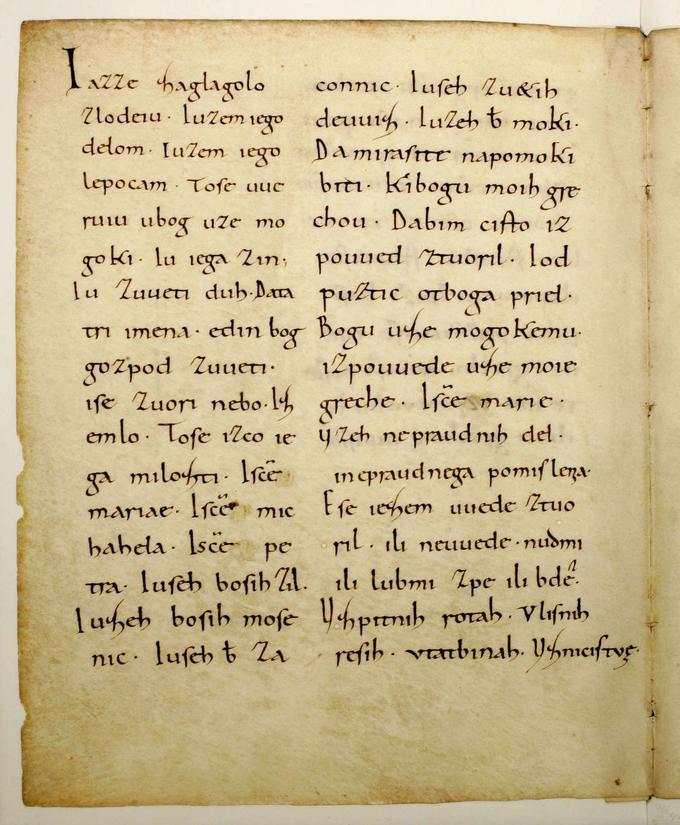 Iazze zaglagolo
zlodeiu· Iuzem iego
delom· Iuzem iego
lepocam· Tose uue
ruiu ubog uze mo
goki· Iu iega zin·,
Iu zuueti duh· Data
tri imena· edin bog
gozpod zuueti·
ise zuori nebo· Iz
emlo· Tose izco ie
ga milozti· Isc̄e
mariae· Isc̄e mic
hahela· Isc̄e pe
tra· Iuseh bosih zil.
Iuzeh bosih mose
nic· Iuseh ƀ za
connic· Iuseh zu&ih
deuuiz· Iuzeh ƀ moki·
Da mirasite napomoki
biti· Kibogu moih gre
chou· Dabim cisto iz
pouued ztuoril· Iod
puztic otboga priel·
Bogu uze mogokemu·
izpouuede uze moie
greche· Isc̄e marie·
Uzeh nepraudnih del·
inepraudnega pomisleza·
Ese iezem uuede ztuo
ril· ili neuuede· nudmi
ili lubmi zpe ili bdē·
Uzpitnih rotah· Vlisnih
resih· vtatbinah· Uznicistve·